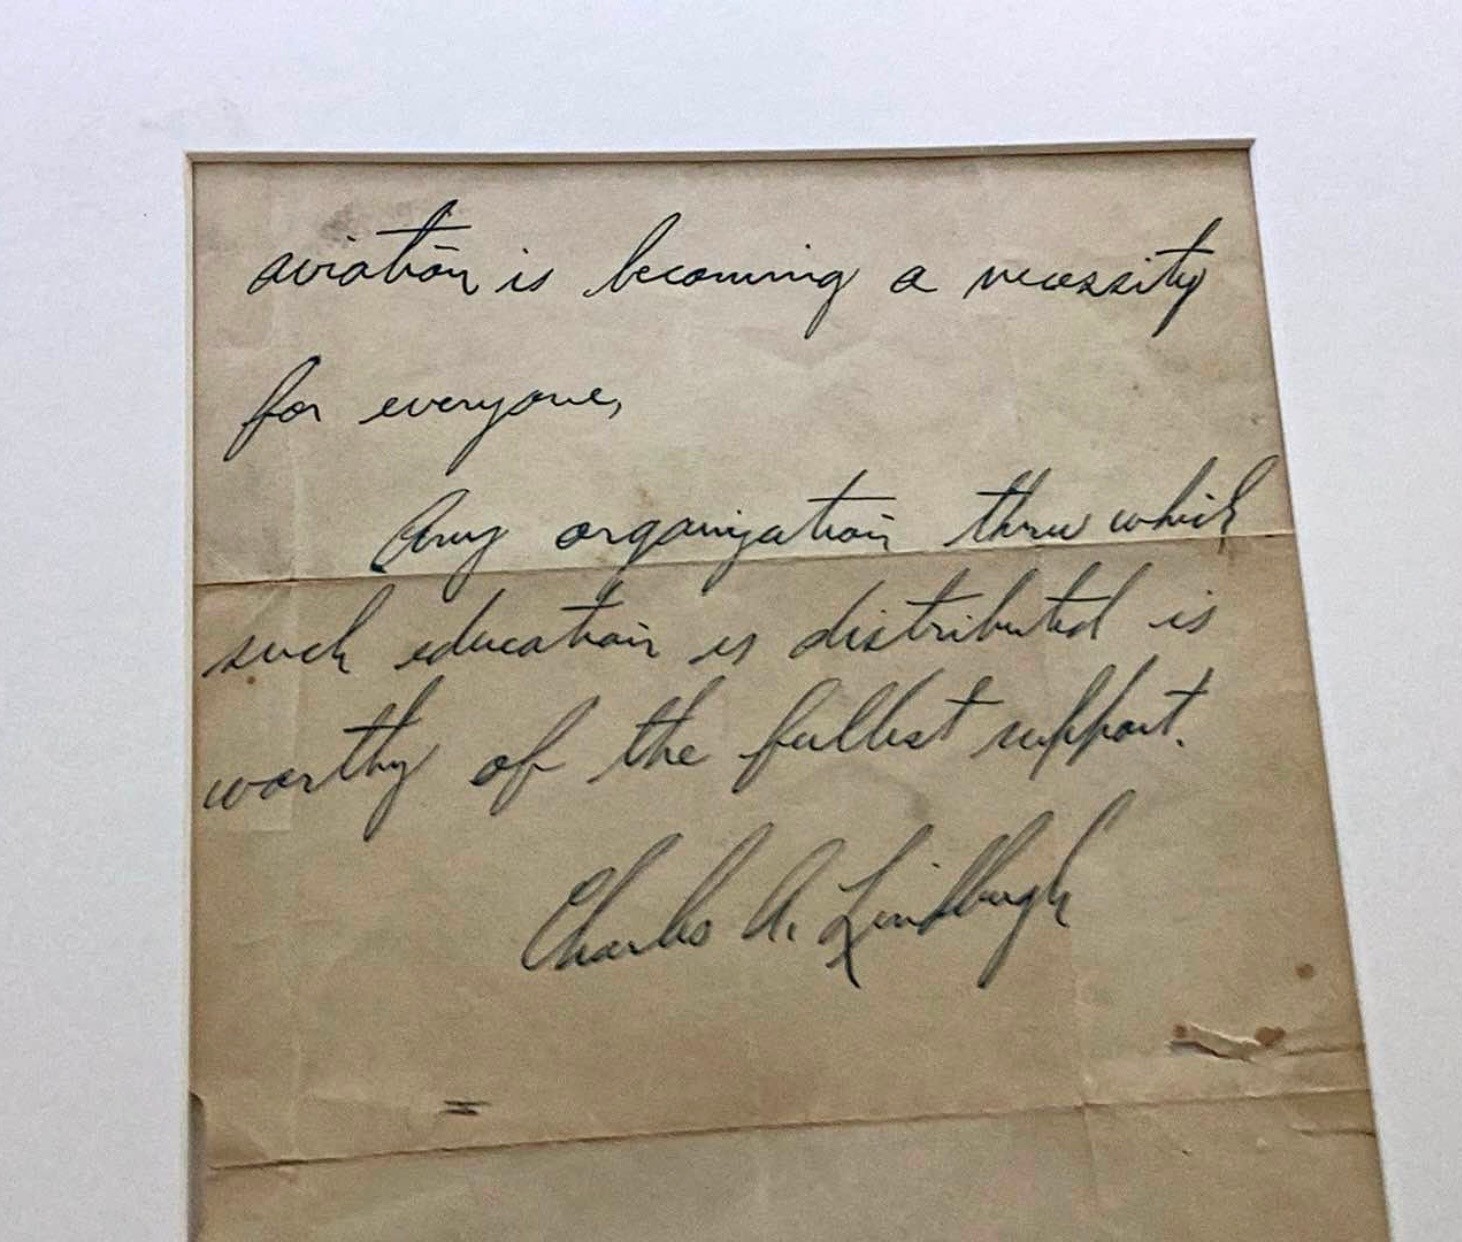 aviation is becoming a necessity
for everyone,
Any organization thru which
such education is distributed is
worthy of the fullest support.
Charles A. Lindbergh